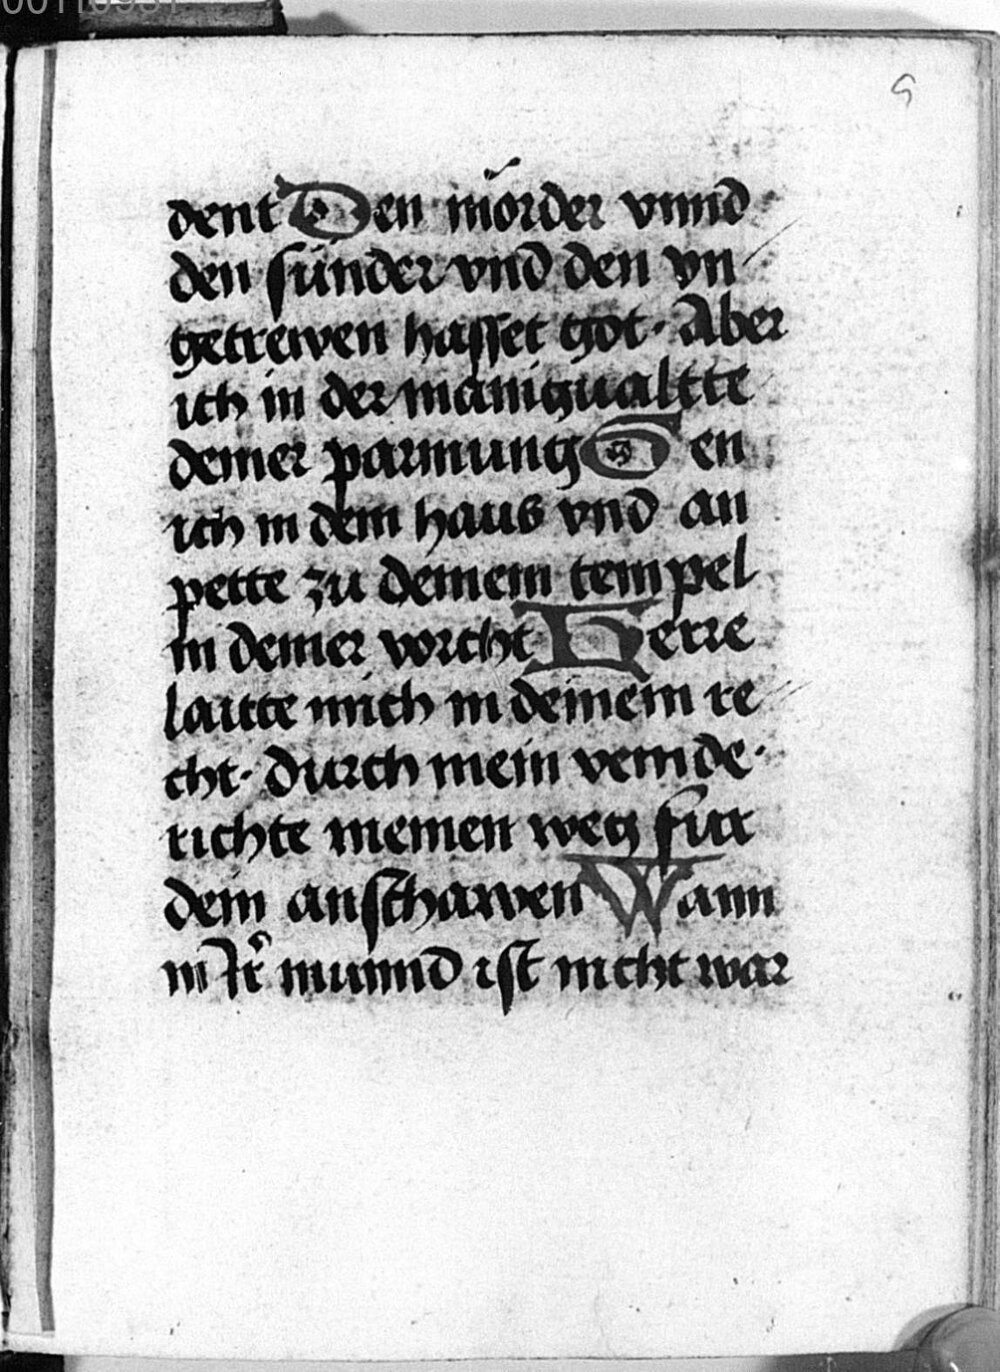 5
dent Den mörder vnnd
den sünder vnd den vn
getrewen hasset got. Aber
ich in der manigualtte
deiner parmung Gen
ich in dein haus vnd an
pette zu deinem tempel
in deiner vorcht Herre
laitte mich in deinem re
cht. durch mein veinde.
richte meinen weg für
dein anschawen Wann
in Ir munnd ist nicht war